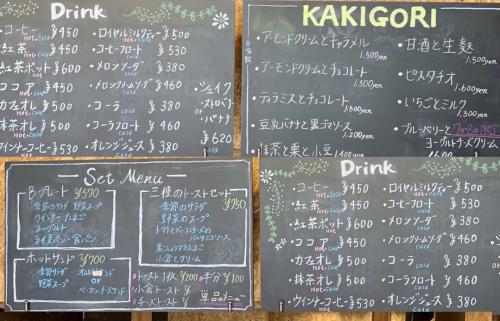 Drink
・コーヒー ¥450
HOT・cold
・紅茶 ¥450
HOT・cold
・紅茶ポット ¥600
HOT
・ココア ¥450
HOT・cold
・カフェオレ ¥500
HOT・cold
・抹茶オレ ¥500
HOT・cold
・ウインナーコーヒー ¥530
・ロイヤルミルクティー ¥500
HOT・cold
・コーヒーフロート ¥530
cold
・メロンソーダ ¥380
cold
・メロンクリームソーダ ¥460
cold
・コーラ ¥380
cold
・コーラフロート ¥460
cold
・オレンジジュース ¥380
・シェイク
ストロベリー
or
バナナ
¥620
cold
KAKIGORI
自家製
・アーモンドクリームとキャラメル
1,500yen
・アーモンドクリームとチョコレート
1,500yen
・ティラミスとチョコレート
1,500yen
・豆乳バナナと黒ゴマソース
1,200yen
・抹茶と栗と小豆
・甘酒と生麩
1,500yen
・ピスタチオ
1,600yen
・いちごとミルク
1,300yen
・ブルーベリーと
ヨーグルチーズクリーム
Set Menu
Bプレート ¥570
季節のサラダ 野菜スープ
ウインナー たまご
ヨーグルト
ライ麦パン・食パン
三種のトーストセット
¥750
季節のサラダ
野菜のスープ
トマトとベーコンチーズの
バルサミコソース
小倉とクリーム
ホットサンド ¥700
季節サラダ
野菜スープ
or
ベーコンチーズサンド
・トースト1枚 ¥200
・半分 ¥100
・小倉トースト
・チーズトースト
単品メニュー
Drink
・コーヒー ¥450
HOT・cold
・紅茶 ¥450
HOT・cold
・紅茶ポット ¥600
HOT
・ココア ¥450
HOT・cold
・カフェオレ ¥500
HOT・cold
・抹茶オレ ¥500
HOT・cold
・ウインナーコーヒー ¥530
HOT・cold
・ロイヤルミルクティー ¥500
HOT・cold
・コーヒーフロート ¥530
cold
・メロンソーダ ¥380
cold
・メロンクリームソーダ ¥460
cold
・コーラ ¥380
cold
・コーラフロート ¥460
cold
・オレンジジュース ¥380
cold